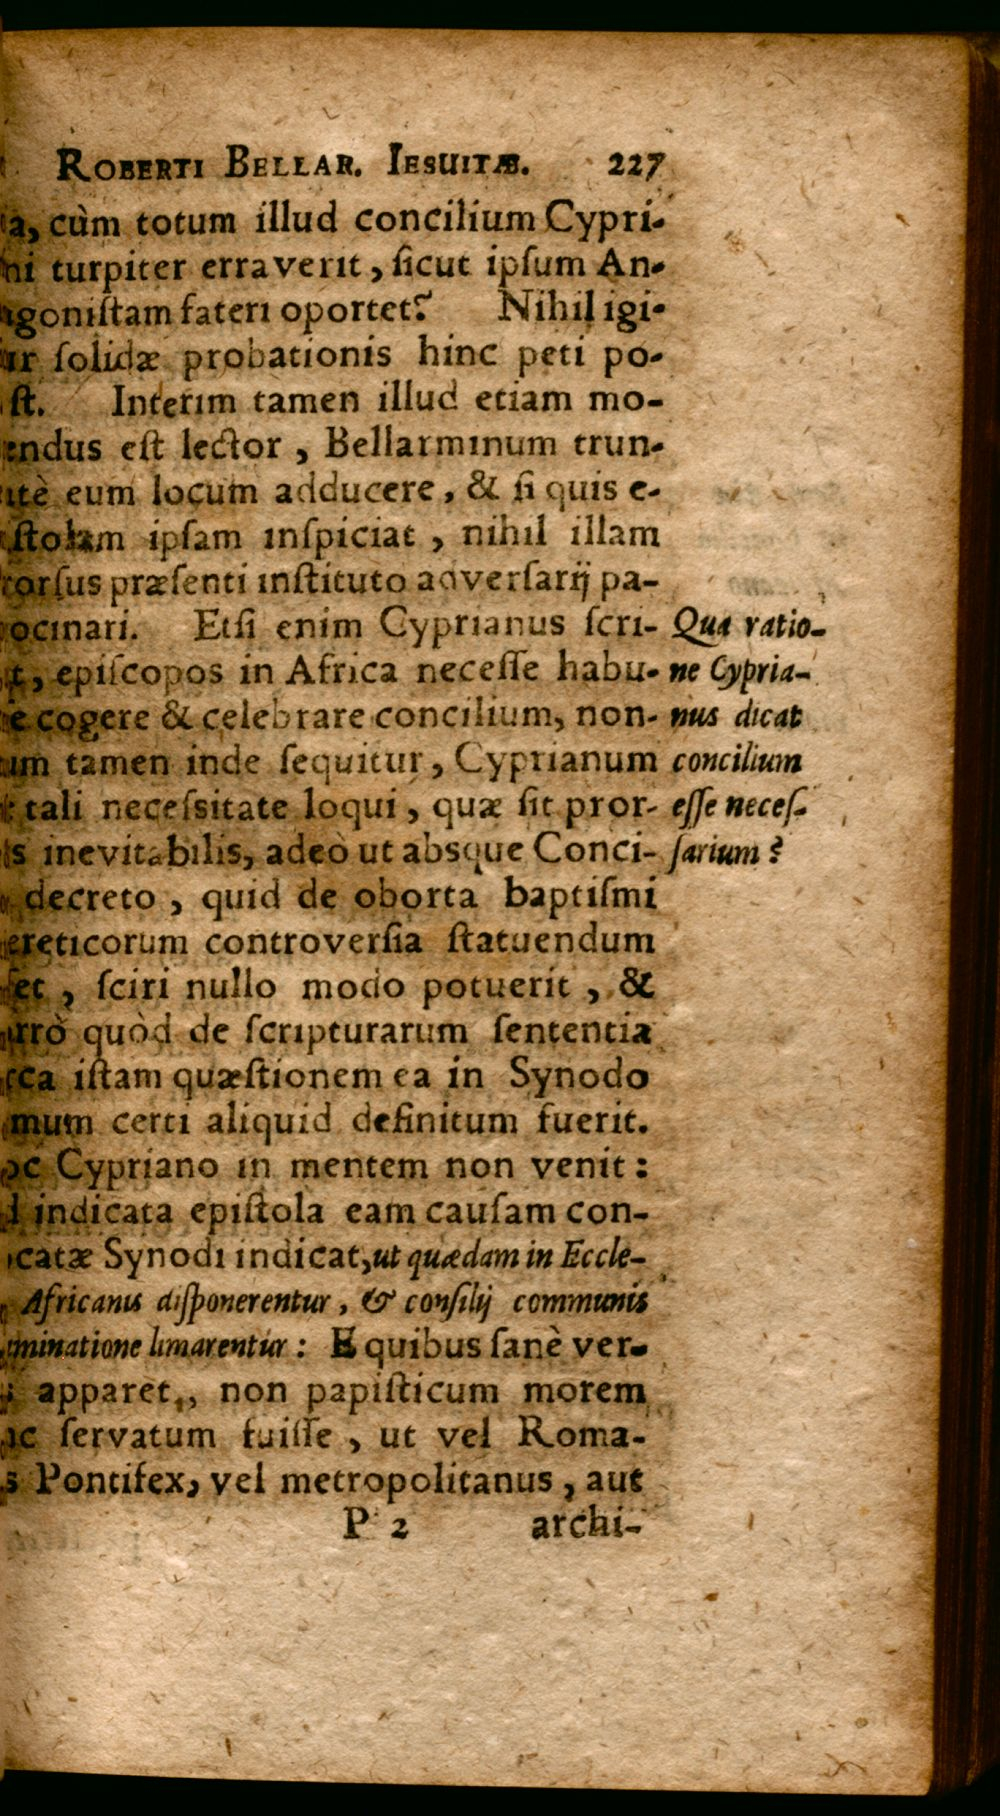 ROBERTI BELLAR. IESUITÆ. 227
a, cùm totum illud concilium Cypri-
ni turpiter erraverit, ſicut ipſum An-
goniſtam fateri oportet? Nihil igi-
ur ſolidæ probationis hinc peti po-
ſt. Interim tamen illud etiam mo-
endus eſt lector, Bellarminum trun-
tè eum locum adducere, & ſi quis e-
ſtolam ipſam inſpiciat, nihil illam
rorſus præſenti inſtituto adverſarij pa-
ocinari. Etſi enim Cyprianus ſcri-
t, epiſcopos in Africa neceſſe habu-
e cogere & celebrare concilium, non-
um tamen inde ſequitur, Cyprianum
tali neceſsitate loqui, quæ ſit pror-
s inevitabilis, adeò ut absque Conci-
decreto, quid de oborta baptiſmi
ereticorum controverſia ſtatuendum
ſet, ſciri nullo modo potuerit, &
rrò quòd de ſcripturarum ſententia
rca iſtam quæſtionem ea in Synodo
mum certi aliquid definitum fuerit.
oc Cypriano in mentem non venit:
d indicata epiſtola eam cauſam con-
catæ Synodi indicat, ut quædam in Eccle-
Africanis diſponerentur, & conſilij communis
minatione limarentur: E quibus ſanè ver-
apparet, non papiſticum morem
ac ſervatum fuiſſe, ut vel Roma-
s Pontifex, vel metropolitanus, aut
P 2 archi-
Qua ratio-
ne Cypria-
nus dicat
concilium
eſſe neceſ-
ſarium?